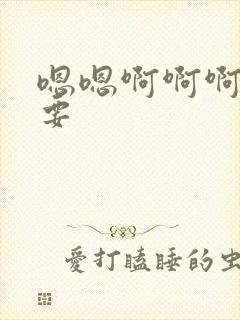 嗯嗯啊啊啊
要
愛打瞌睡的虫